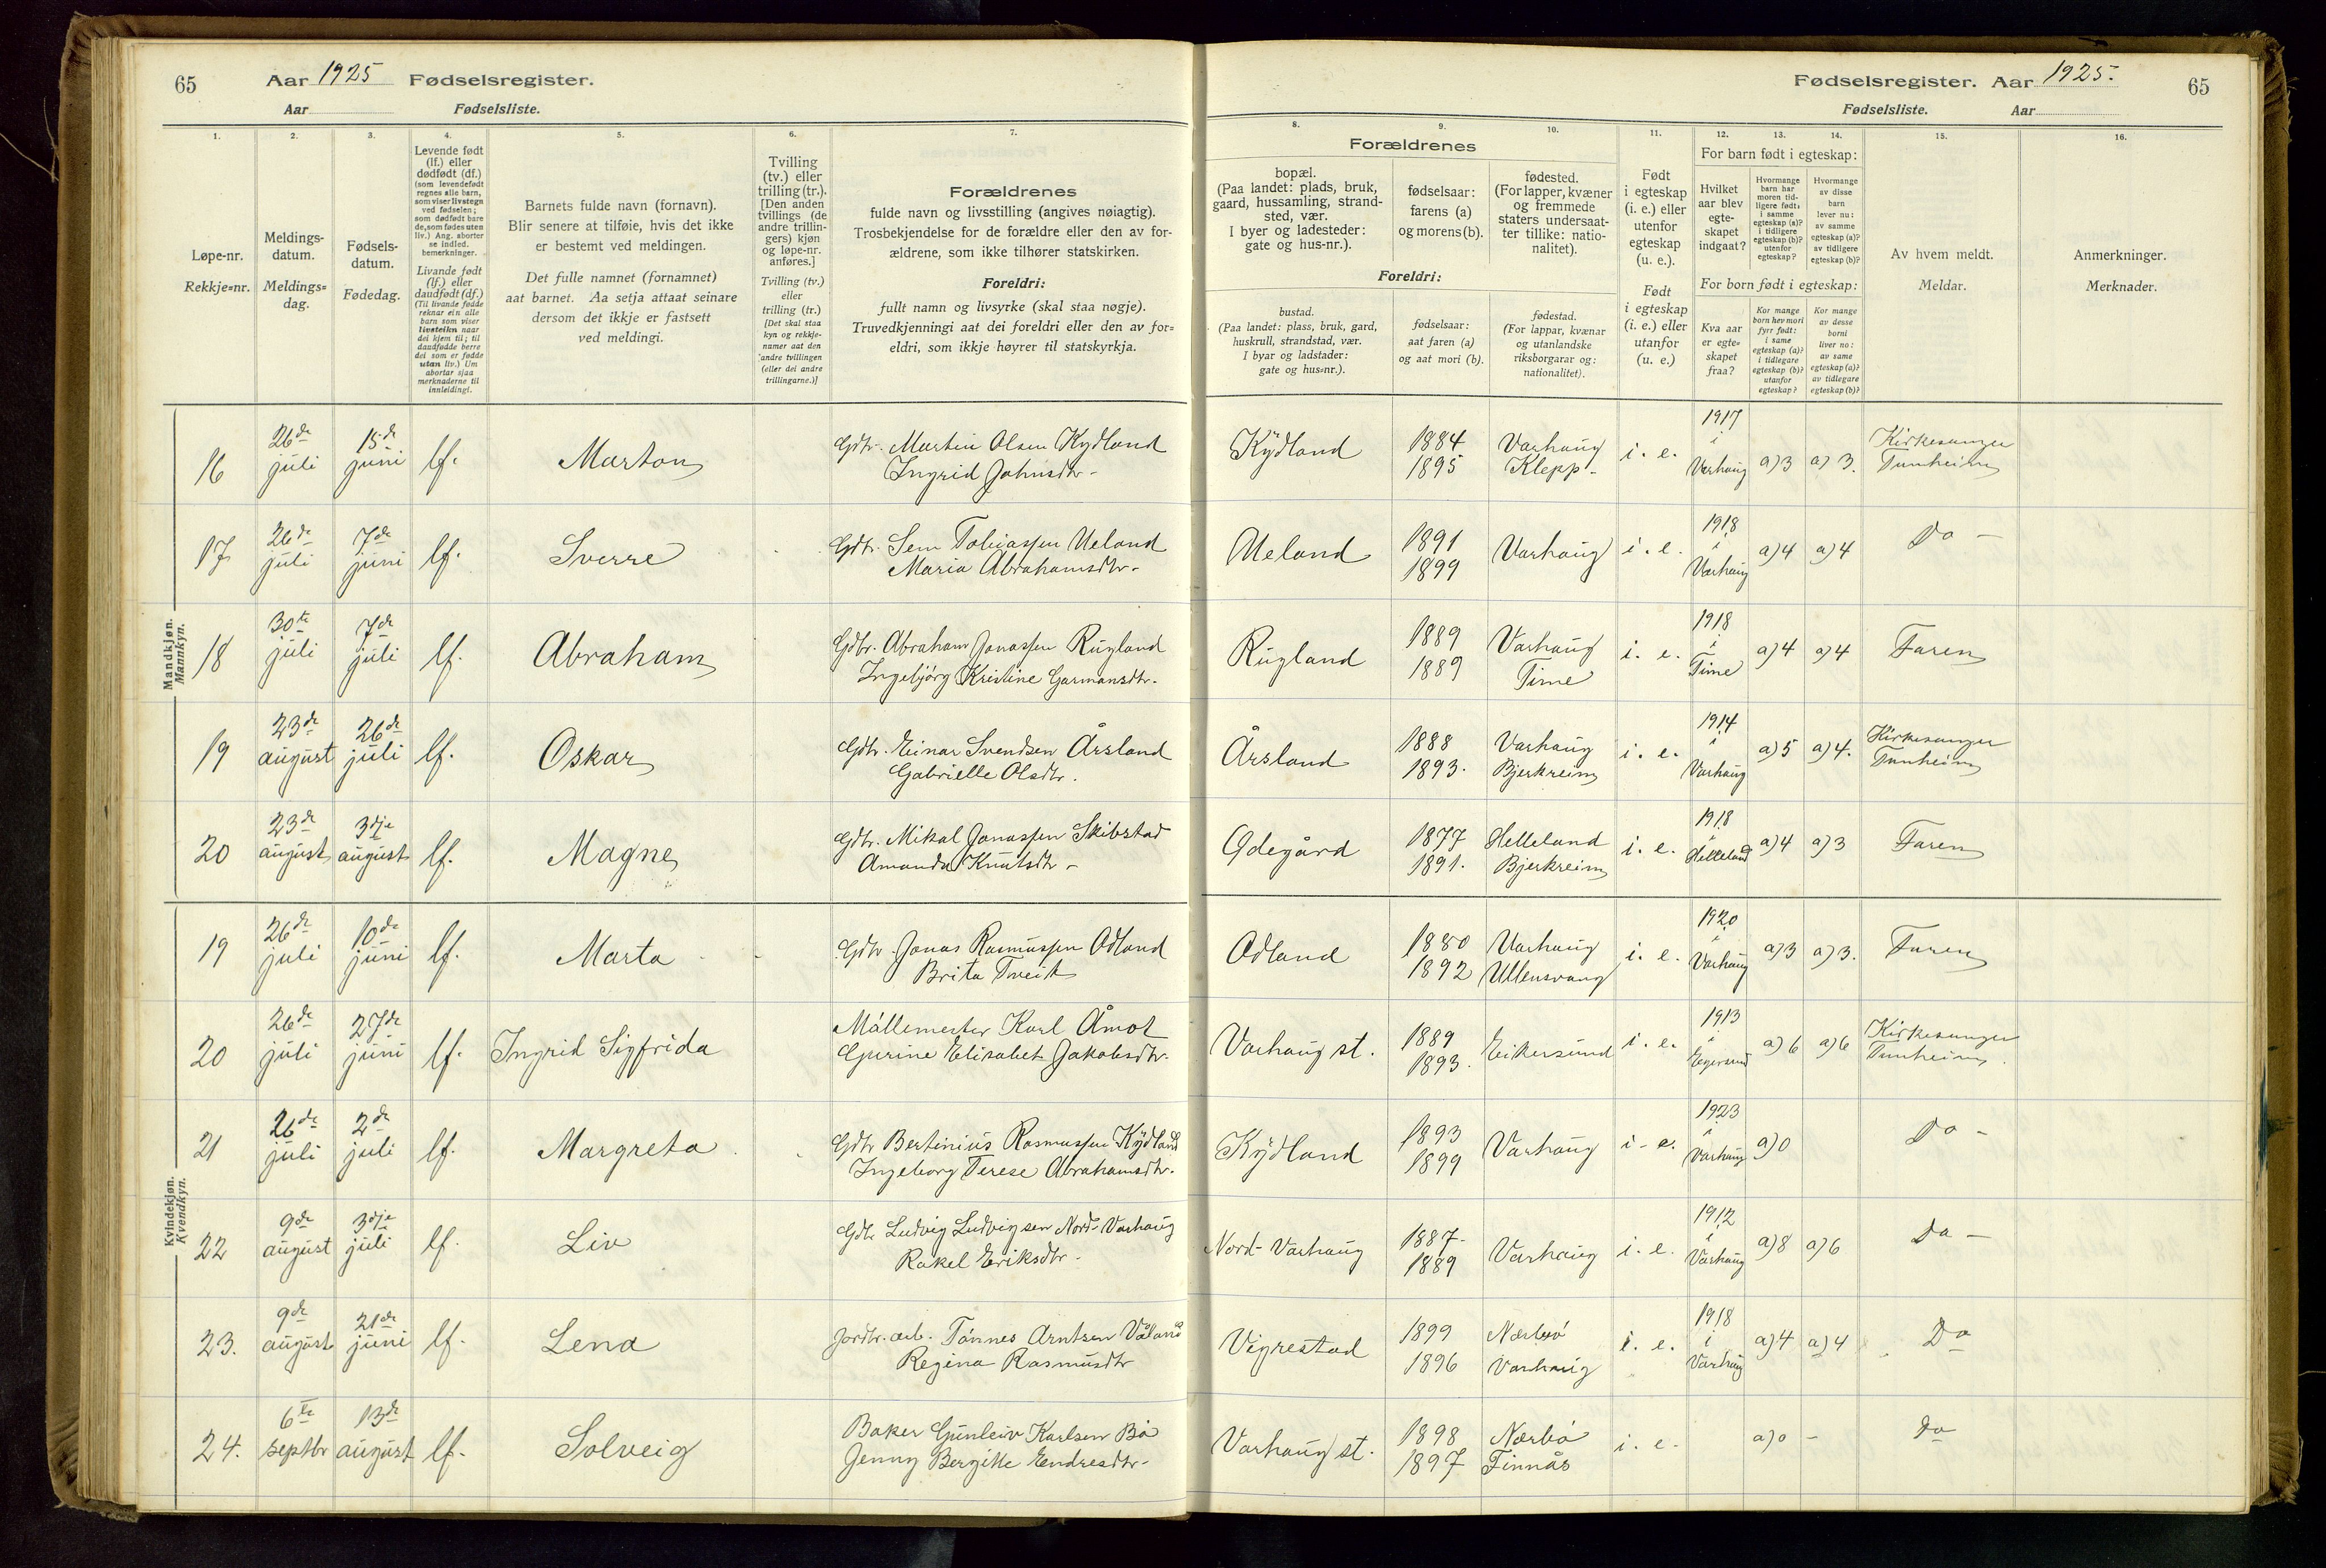 65 Aar 1925 Fødselsregister.
Aar Fødselsliste.
Fødselsregister. Aar 1925. 65
Fødselsliste. Aar
1. 2. 3. 4. 5. 6. 7. 8. 9. 10. 11. 12. 13. 14. 15. 16.
Løpe-nr.
Rekkje=nr.
Meldings-
datum.
Meldings=
dag.
Fødsels-
datum.
Fødedag.
Levende født
(lf.) eller
dødfødt (df.)
(som levendefødt
regnes alle barn,
som viser livstegn
ved fødselen;
som dødfødt bare
de, som fødes uten
liv.) Ang. aborter
se indled.
bemerkninger.
Livande født
(lf.) eller
daudfødt (df.)
(Til livande fødde
reknar ein alle
barn som viser
livsteikn naar
dei kjem til; til
daudfødde berre
dei som er fødde
utan liv.) Um
abortar sjaa
merknaderne til
innleidingi.
Barnets fulde navn (fornavn).
Blir senere at tilføie, hvis det ikke
er bestemt ved meldingen.
Det fulle namnet (fornamnet)
aat barnet. Aa setja attaat seinare
dersom det ikkje er fastsett
ved meldingi.
Tvilling
(tv.) eller
trilling (tr.).
[Den anden
tvillings (de
andre trillin-
gers) kjøn
og løpe-nr.
anføres.]
Tvilling (tv.)
eller
trilling (tr.)
[Det skal staa
kyn og rekkje-
numer aat den
andre tvillingen
(eller dei andre
trillingarne.)]
Forældrenes
fulde navn og livsstilling (angives nøiagtig).
Trosbekjendelse for de forældre eller den av for-
ældrene, som ikke tilhører statskirken.
Foreldri:
fullt namn og livsyrke (skal staa nøgje).
Truvedkjenningi aat dei foreldri eller den av for=
eldri, som ikkje høyrer til statskyrkja.
Forældrenes
bopæl.
(Paa landet: plads, bruk,
gaard, hussamling, strand-
sted, vær.
I byer og ladesteder:
gate og hus-nr.).
fødselsaar:
farens (a)
og morens (b).
fødested.
(For lapper, kvæner
og fremmede
staters undersaat-
ter tillike: natio-
nalitet).
Foreldri:
bustad.
(Paa landet: plass, bruk, gard,
huskrull, strandstad, vær.
I byar og ladstader:
gate og hus=nr.).
fødselsaar:
aat faren (a)
og aat mori (b).
fødestad.
(For lappar, kvænar
og utanlandske
riksborgarar og:
nationalitet).
Født
i egteskap
(i. e.) eller
utenfor
egteskap
(u. e.).
Født
i egteskap
(i. e.) eller
utanfor
(u. e.)
For barn født i egteskap:
Hvilket
aar blev
egte-
skapet
indgaat?
Hvormange
barn har
moren tid-
ligere født:
i samme
egteskap (a)?
i tidligere
egteskap (b)?
utenfor
egteskap?
Hvormange
av disse
barn
lever nu:
av samme
egteskap (a)?
av tidligere
egteskap (b)?
For born født i egteskap:
Kva aar
er egte=
skapet
fraa?
Kor mange
born hev mori
fyrr født:
i same
egteskap (a)?
i tidlegare
egteskap (b)?
utanfor
egteskap?
Kor mange
av desse
borni
liver no:
av same
egteskap (a)?
av tidlegare
egteskap (b)?
Av hvem meldt.
Meldar.
Anmerkninger.
Merknader.
Mandkjøn.
Mannkyn.
16 26de juli 15de juni lf. Marton Gdbr. Martin Olsen Kydland
Ingrid Johnsdtr-
Kydland 1884 1895 Varhaug Klepp- i. e. 1917 i Varhaug a)3 a)3. Kirkesanger Tunheim
17 26de juli 7de juni lf. Sverre Gdbr. Sem Tobiassen Ueland
Maria Abrahamsdtr-
Ueland 1891 1899 Varhaug i. e. 1918 i Varhaug a)4 a)4 Do -
18 30te juli 7de juli lf. Abraham Gdbr. Abraham Jonassen Rugland
Ingebjørg Kristine Garmansdtr.
Rugland 1889 1889 Varhaug Time i. e. 1918 i Time a)4 a)4 Faren
19 23de august 26de juli lf. Oskar Gdbr. Einar Svendsen Årsland
Gabrielle Olsdtr.
Årsland 1888 1893. Varhaug Bjerkreim i. e. 1914 i Varhaug a)5 a)4. Kirkesanger Tunheim
20 23de august 3dje august lf. Magne Gdbr. Mikal Jonassen Skibstad
Amanda Knutsdtr-
Ødegård 1877 1891. Helleland Bjerkreim i. e. 1918 i Helleland a)4 a)3 Faren
Kvindekjøn.
Kvendkyn.
19 26de juli 10de juni lf. Marta Gdbr. Jonas Rasmussen Ødland
Brita Tveit
Ødland 1880 1892 Varhaug Ullensvang i. e. 1920 i Varhaug a)3 a)3. Faren
20 26de juli 27de juni lf. Ingrid Sigfrida Møllemester Karl Åmot
Gurine Elisabet Jakobsdtr.
Varhaug st. 1889 1893. Eikersund i. e. 1913 i Egersund a)6 a)6 Kirkesanger Tunheim.
21 26de juli 2de juli lf. Margreta Gdbr Bertinius Rasmussen Kydland
Ingeborg Terese Abrahamsdtr.
Kydland 1893 1899 Varhaug i. e. 1923 i Varhaug a)0 Do -
22 9de august 3dje juli lf. Liv Gdbr Ludvig Ludvigsen Nord-Varhaug
Rakel Eriksdtr-
Nord-Varhaug 1887- 1889 Varhaug i. e. 1912 i Varhaug a)8 a)6 Do -
23. 9de august 21de juni lf. Lena Jordbr. arb. Tønnes Arntsen Våland
Regina Rasmusdtr
Vigrestad 1899 1896 Nærbø Varhaug i. e. 1918 i Varhaug a)4 a)4 Do
24. 6te septbr 13de august lf. Solveig Baker Gunleiv Karlsen Bø
Jenny Bergitte Endresdtr-
Varhaug st. 1898 1897 Nærbø Finnås i. e. a)0 - Do